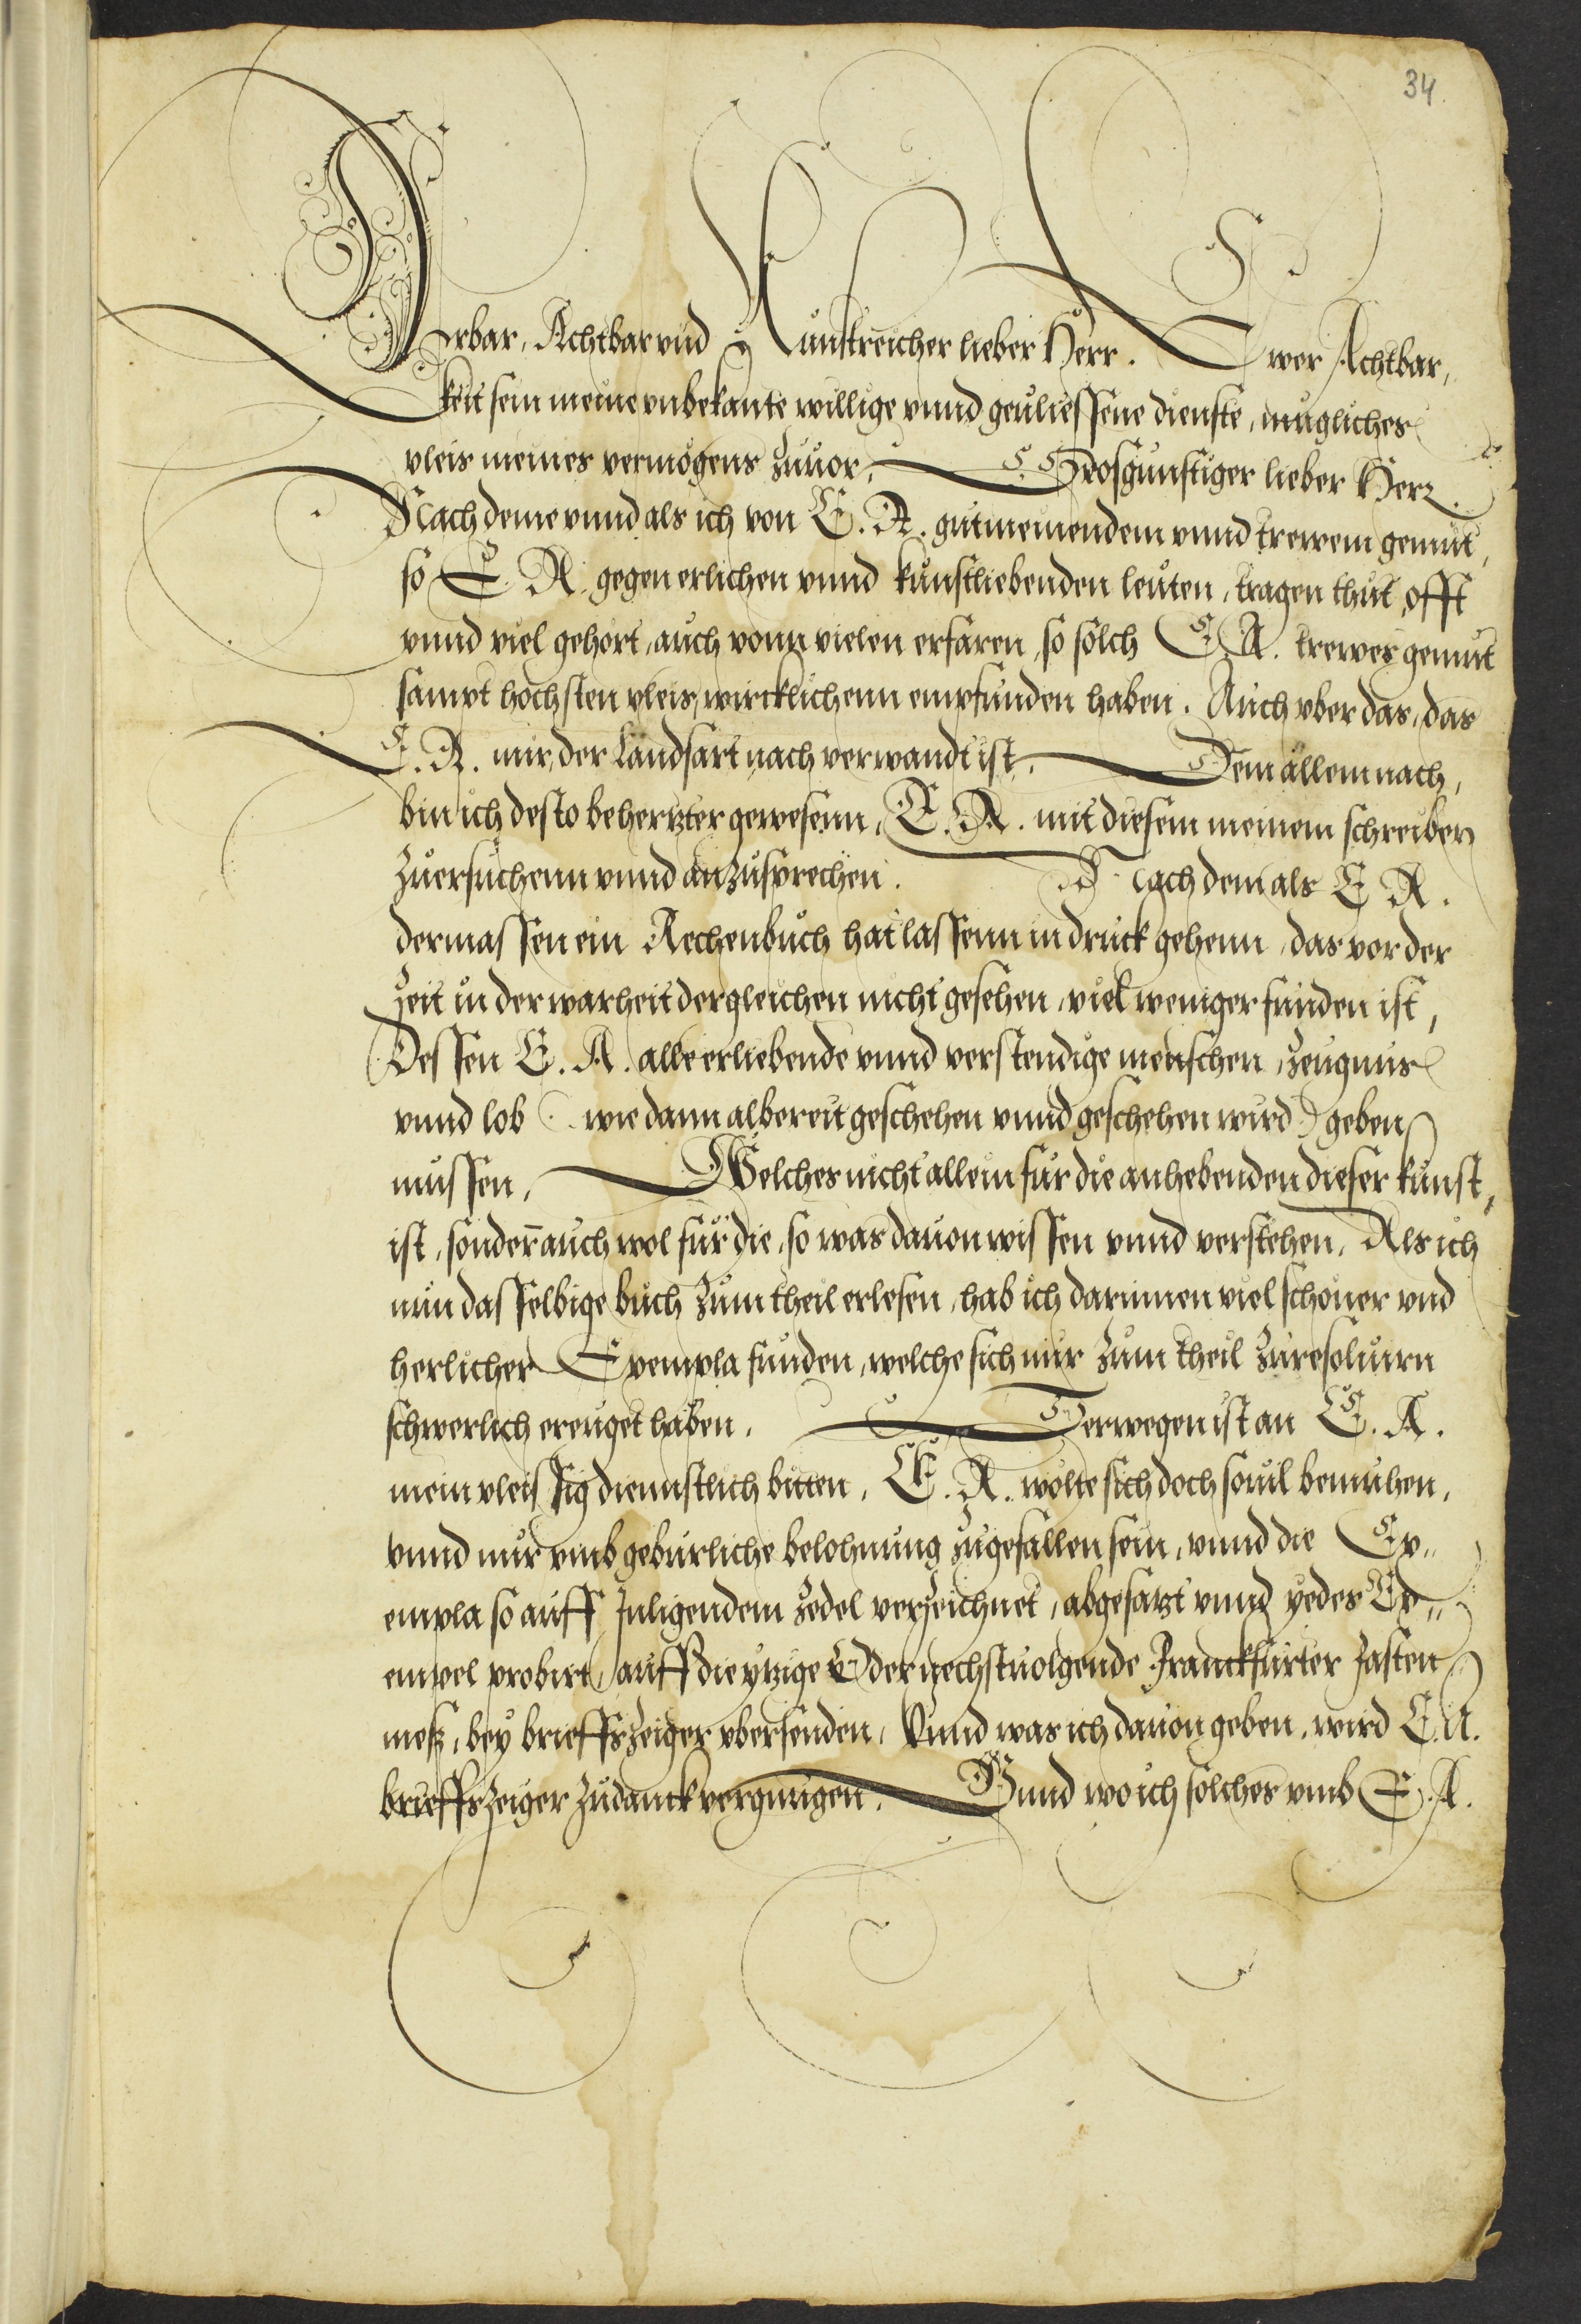 34.
Erbar, Achtbar vnd Kunstreicher lieber Herr. Ewer Achtbar,
keit sein meine vnbekante willige vnnd geuliessene dienste, muglicher
vleis meines vermögens zuuor, Grosgunstiger lieber Herr.
Nach deme vnnd als ich von E. A. gutmeinendem vnnd trewem gemut,
so E. A. gegen erlichen vnnd kunstliebenden leuten, tragen thut, offt
vnnd viel gehort, auch vonn vielen erfaren, so solch E. A. trewes gemut
sampt hochsten vleis, wircklichenn empfunden haben. Auch vber das, das
E. A. mir, der Landsart nach verwandt ist. Dem allem nach,
bin ich desto behertzter gewesenn, E. A. mit diesem meinem schreiben
zuersuchenn vnnd anzusprechen. Nach dem als E A.
dermassen ein Rechenbuch hat lassenn in druck gehenn, das vor der
zeit in der warheit dergleichen nicht gesehen, viel weniger funden ist,
Dessen E. A. alle erliebende vnnd verstendige menschen, zeugnus
vnnd lob (wie dann albereit geschehen vnnd geschehen wird) geben
mussen, Welches nicht allein fur die anhebenden dieser kunst,
ist, sondern auch wol fur die, so was dauon wissen vnnd verstehen, Als ich
nun dasselbige buch zum theil erlesen, hab ich darinnen viel schoner vnd
herlicher Exempla funden, welche sich mir zum theil zu resoluirn
schwerlich ereuget haben. Derwegen ist an E. A.
mein vleissig diennstlich bitten, E. A. wolte sich doch souil bemuhen,
vnnd mir vmb geburliche belohnung zugefallen sein, vnnd die Ex„
empla so auff Inligendem zedel verzeichnet, abgesatzt vnnd yedes Ex„
empel probirt, auff die ytzige Oder nechstuolgende Franckfurter Fasten
mess, bey brieffszeiger vbersenden, Vnnd was ich dauon geben, wird E. A.
brieffszeiger zu danck vergnugen. Vnnd wo ich solches vmb E. A.